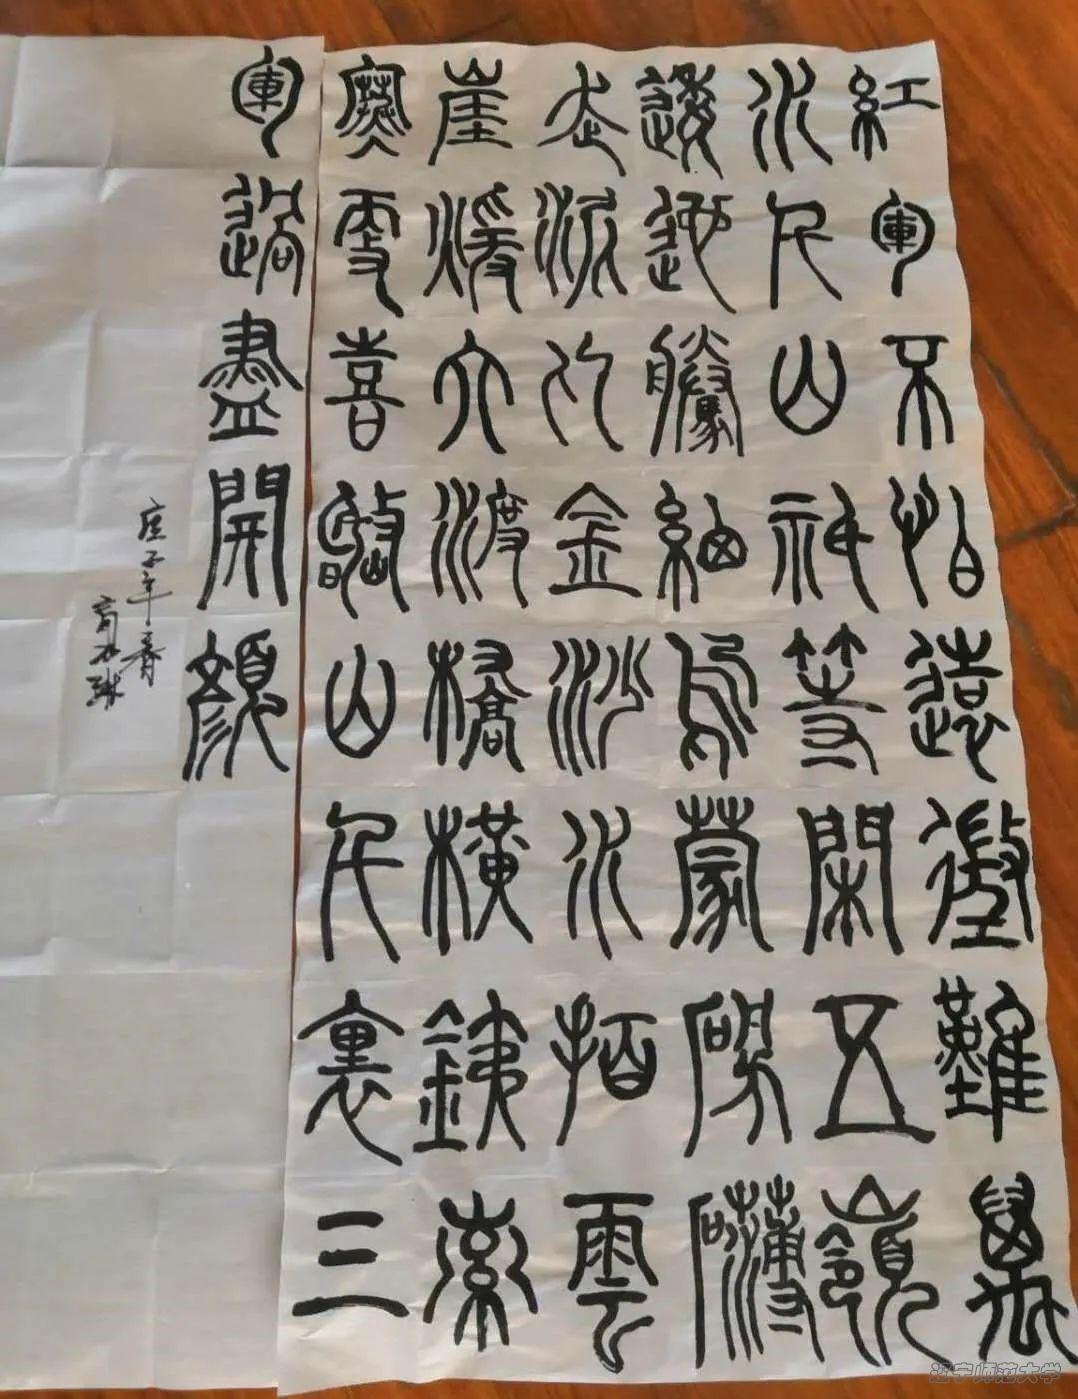 紅軍不怕遠徵難萬
水千山祇等閑五嶺
逶迤騰細烏蒙磅礴
走泥丸金沙水拍雲
崖暖大渡橋橫鐵索
寒更喜岷山千裏三
軍過盡開顏
庚子年春
辽宁师范大学